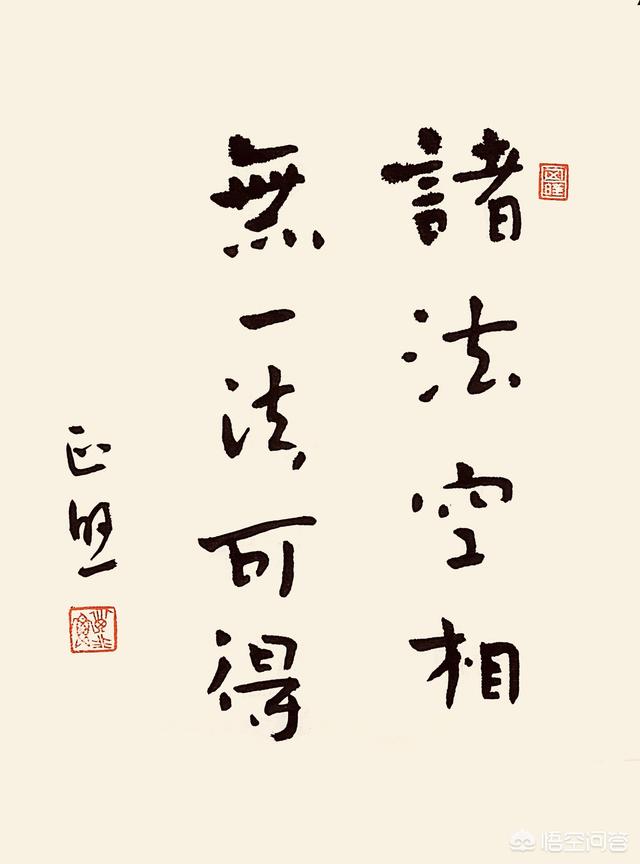 諸法空相
無一法可得
正照
悟空问答